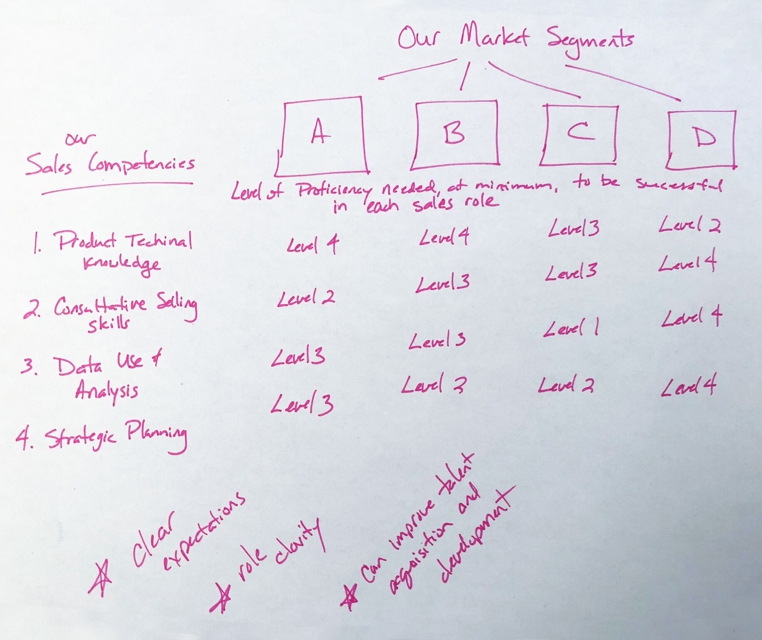 Our Market Segments
A B C D
our
Sales Competencies
Level of Proficiency needed, at minimum, to be successful
in each sales role
1. Product Techinal
Knowledge
Level 4 Level 4 Level 3 Level 2
2. Consultative Selling
skills
Level 2 Level 3 Level 3 Level 4
3. Data Use &
Analysis
Level 3 Level 3 Level 1 Level 4
4. Strategic Planning
Level 3 Level Level 2 Level 4
clear
expectations
role clarity
can improve talent
acquisition and
development